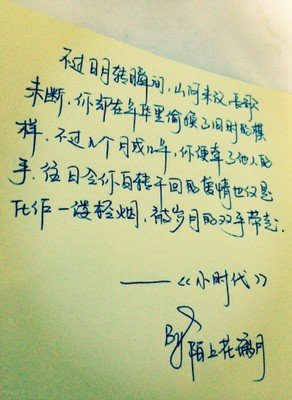 不过日月转瞬间，山河未改长歌
未断，你却在年华里偷换了旧时的模
样。不过几个月或几年，你便牵了他人的
手。往日令你百转千回的情也仅是
化作一缕轻烟，被岁月的双手带走.
——《小时代》
By 陌上花月